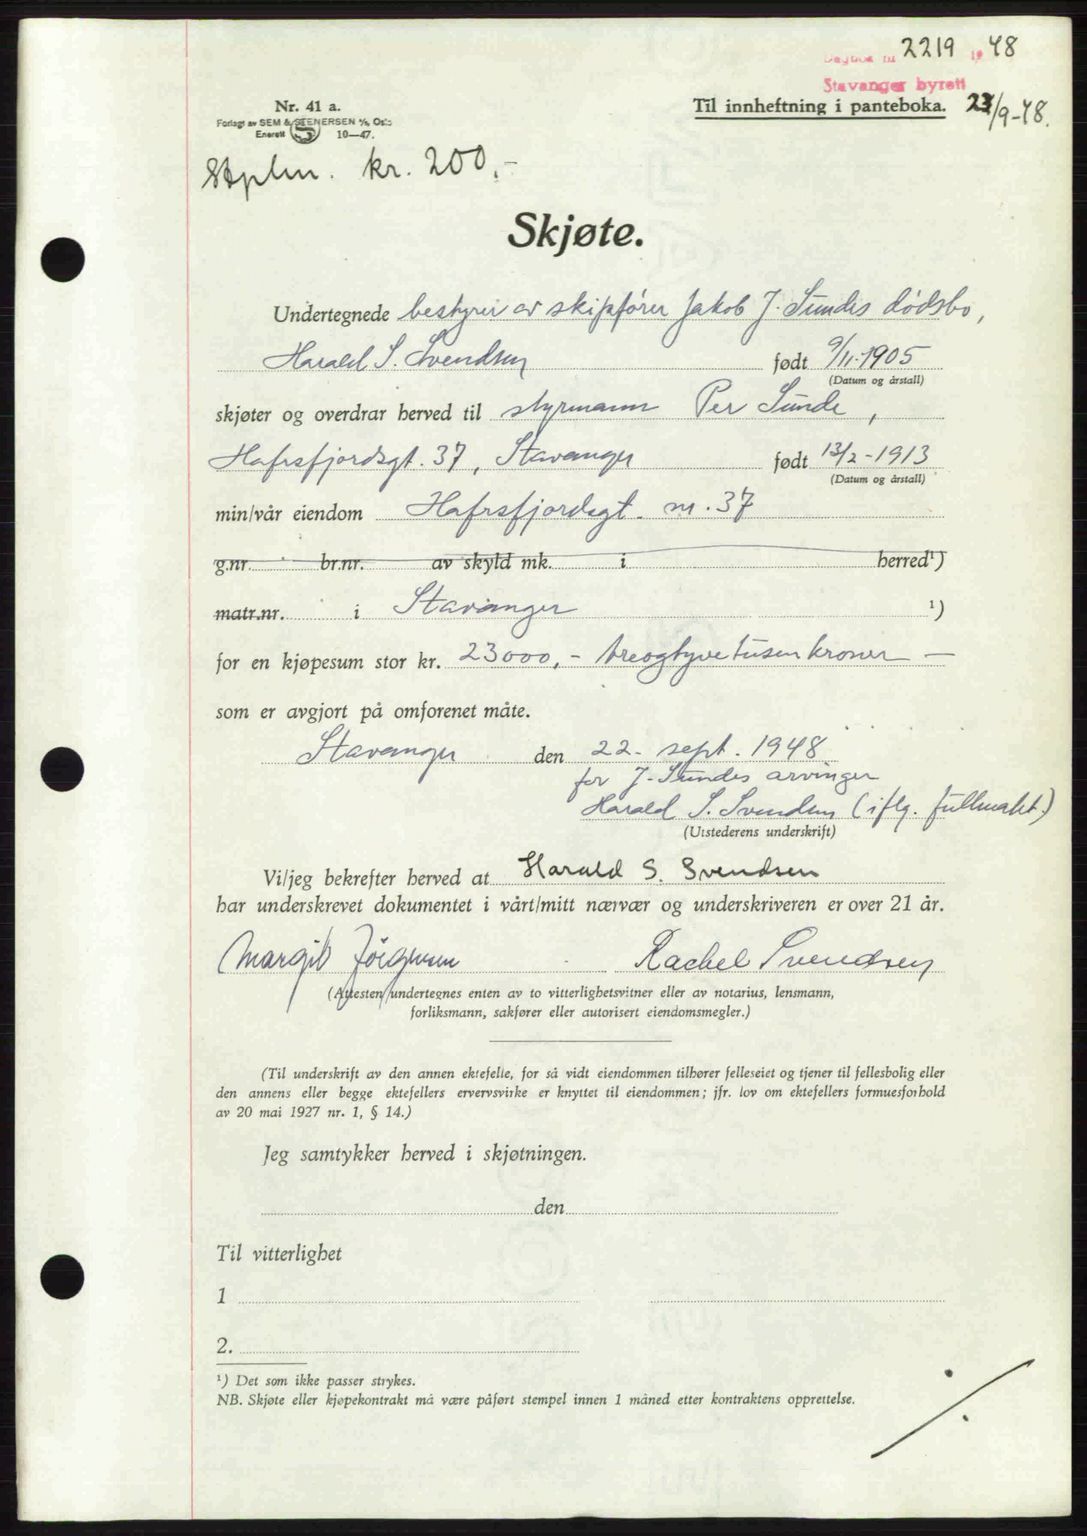 Dagbok nr 2219 19 48
Stavanger byrett
Nr. 41 a.
Til innheftning i panteboka. 23/9-48.
Forlagt av SEM & STENERSEN A/S, Oslo
Enerett S 10—47.
Stplm. kr. 200,-
Skjøte.
Undertegnede bestyrer av skipsfører Jakob J. Sundes dødsbo,
Harald S. Svendsen født 9/11-1905
(Datum og årstall)
skjøter og overdrar herved til styrmann Per Sunde,
Hafrsfjordsgt. 37, Stavanger født 13/2-1913
(Datum og årstall)
min/vår eiendom Hafrsfjordsgt. nr. 37
g.nr. br.nr. av skyld mk. i herred¹)
matr.nr. i Stavanger ¹)
for en kjøpesum stor kr. 23000,- treogtyvetusen kroner —
som er avgjort på omforenet måte.
Stavanger den 22. sept. 1948
for J. Sundes arvinger
Harald S. Svendsen (iflg. fullmakt)
(Utstederens underskrift)
Vi/jeg bekrefter herved at Harald S. Svendsen
har underskrevet dokumentet i vårt/mitt nærvær og underskriveren er over 21 år.
Margit Rachel Svendsen
(Attesten undertegnes enten av to vitterlighetsvitner eller av notarius, lensmann,
forliksmann, sakfører eller autorisert eiendomsmegler.)
(Til underskrift av den annen ektefelle, for så vidt eiendommen tilhører felleseiet og tjener til fellesbolig eller
den annens eller begge ektefellers ervervsvirke er knyttet til eiendommen; jfr. lov om ektefellers formuesforhold
av 20 mai 1927 nr. 1, § 14.)
Jeg samtykker herved i skjøtningen.
den
Til vitterlighet
1
2.
¹) Det som ikke passer strykes.
NB. Skjøte eller kjøpekontrakt må være påført stempel innen 1 måned etter kontraktens opprettelse.